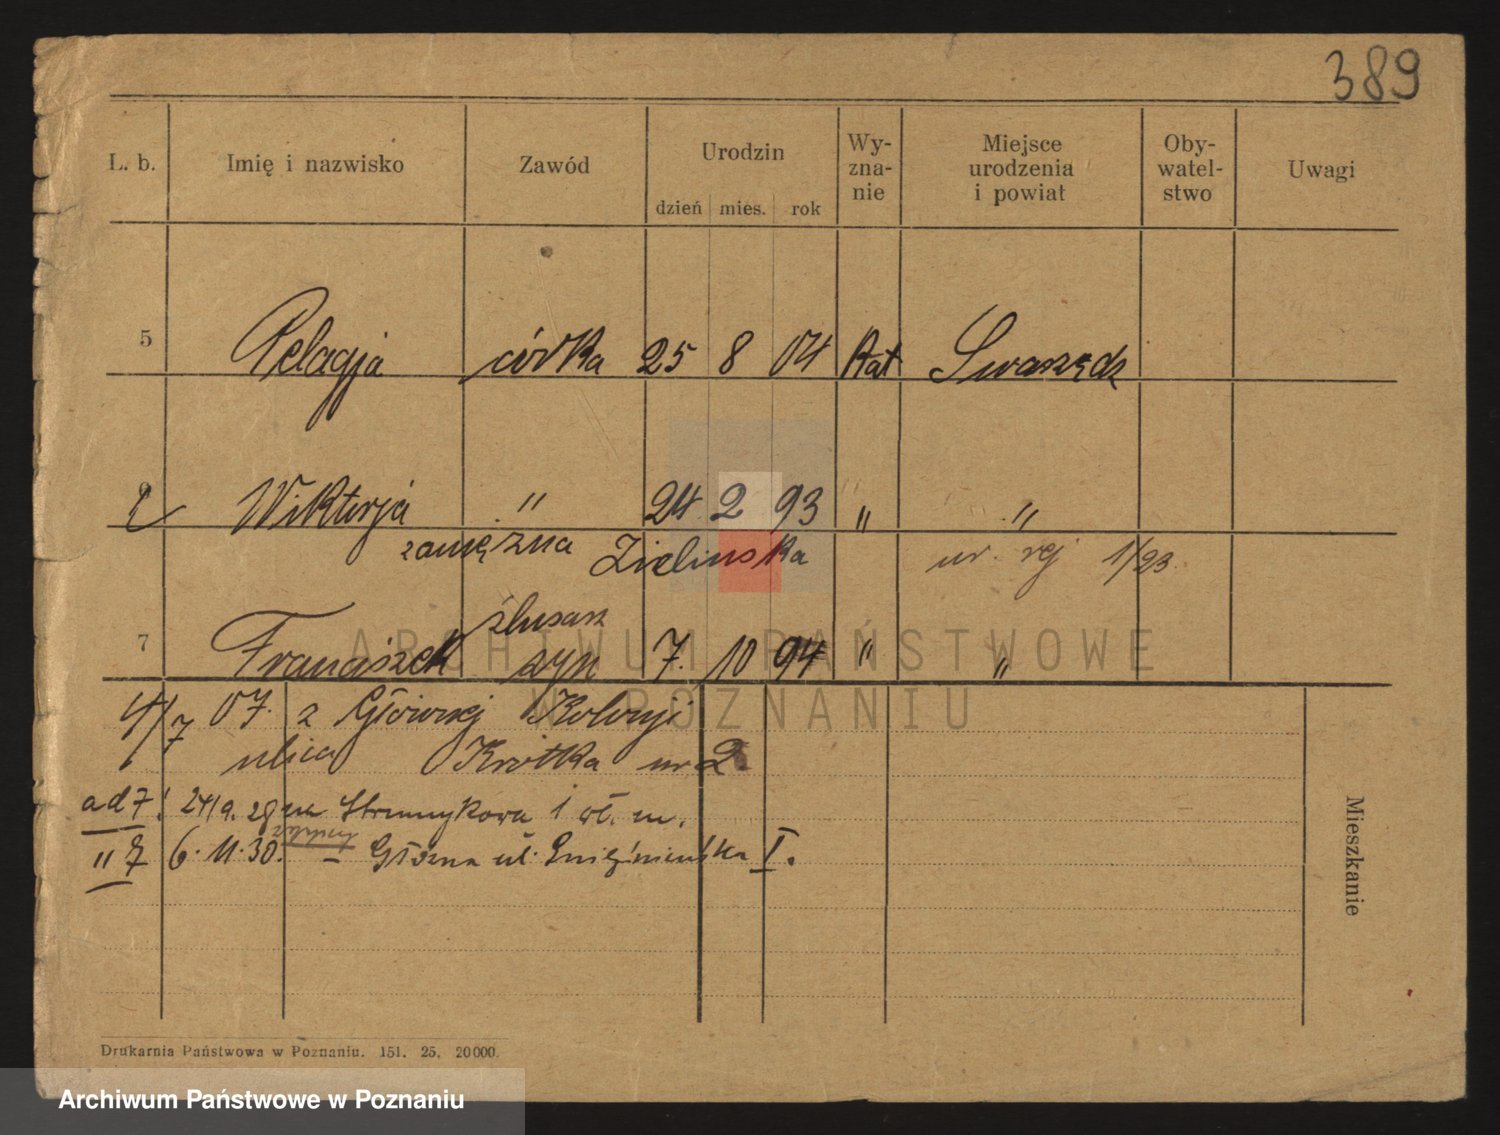 389
L. b. Imię i nazwisko Zawód Urodzin dzień mies. rok Wy-zna-nie Miejsce urodzenia i powiat Oby-watel-stwo Uwagi
5 Pelagja córka 25 8 04 Kat Swarzędz
Wiktorja " 24 2 93 " "
zamężna Zielinska nr. rej 1/23
ślusarz
7 Franciszek syn 7. 10 94 " "
4/7 07. z Głównej Kolonji
ulica Krótka nr 2
ad 7! 24/9. 28 na Strumykowa 1 wł. m.
" 7 6. 11. 30. – Główna ul. Gnieźnieńska I.
Mieszkanie
Drukarnia Państwowa w Poznaniu. 151. 25. 20000.
ARCHIWUM PAŃSTWOWE
W POZNANIU
Archiwum Państwowe w Poznaniu